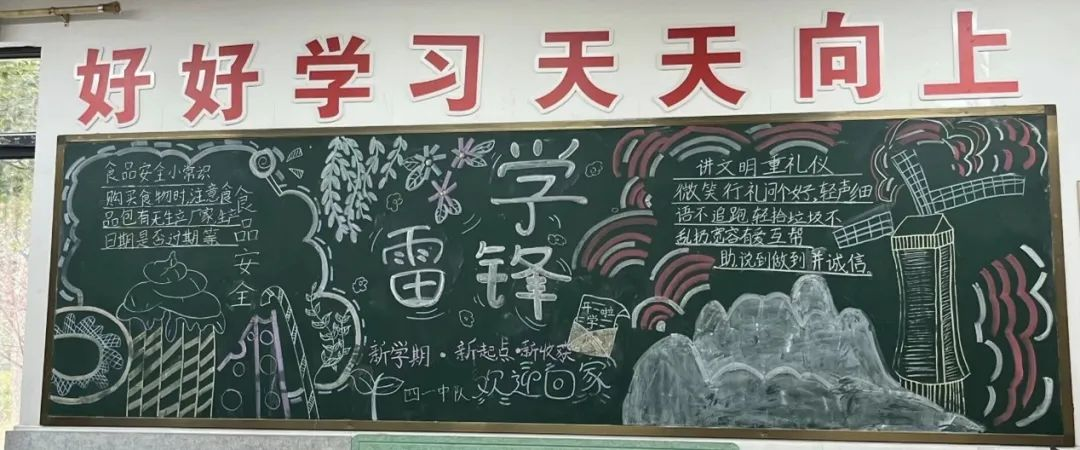 好好学习天天向上
食品安全小常识
购买食物时,注意食
品包有无生产厂家生产
日期是否过期等
食品安全
学
雷锋
开学啦
新学期·新起点·新收获
四一中队 欢迎回家
讲文明重礼仪
微笑行礼问个好,轻声细
语不追跑,轻拾垃圾不
乱扔宽容有爱互帮
助,说到做到并诚信